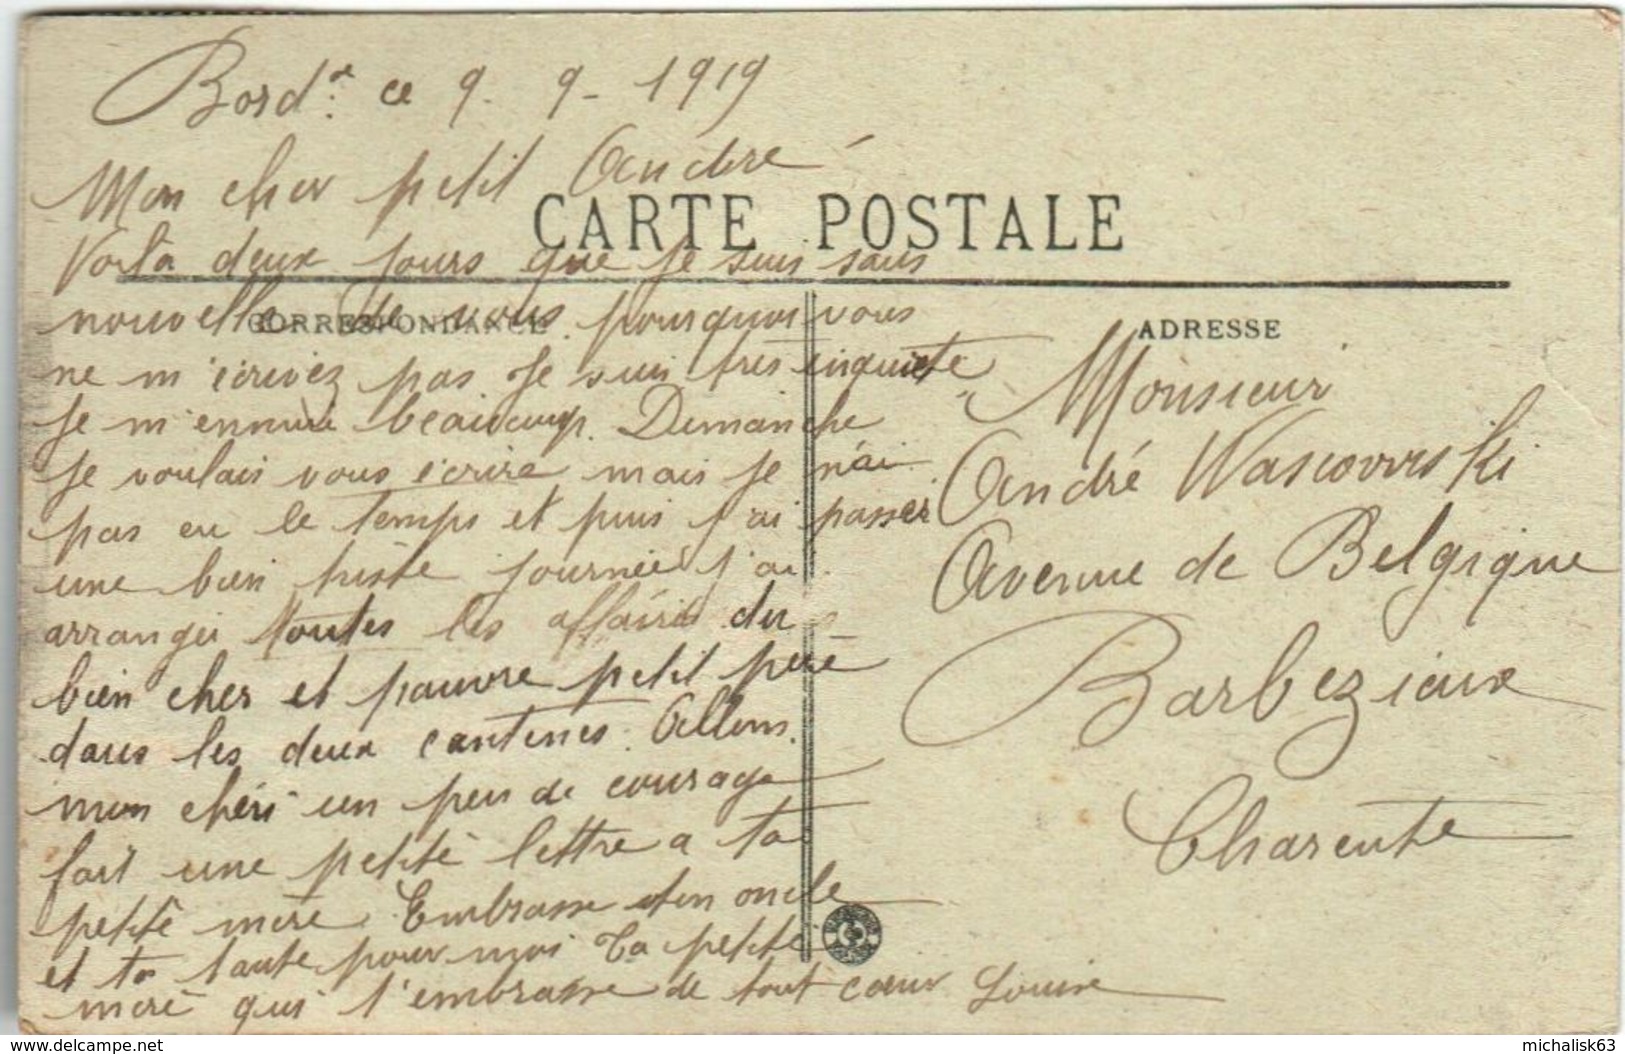 Bordx. ce 9. 9- 1919
Mon cher petit André
CARTE POSTALE
Voila deux jours que je suis sans
CORRESPONDANCE
nouvelle de vous pourquoi vous
ne m'écrivez pas Je suis très inquiète
Je m'ennuie beaucoup. Dimanche
je voulais vous écrire mais je n'ai
pas eu le temps et puis j'ai passer
une bien triste journée j'ai
arranger toutes les affaires du
bien cher et pauvre petit père
dans les deux cantines. Allons.
mon chéri un peu de courage
fait une petite lettre a ta
petite mère Embrasse ton oncle
et ta tante pour moi Ta petite
mère qui t'embrasse de tout cœur Louise
ADRESSE
Monsieur
André Wascowiski
Avenue de Belgique
Barbezieux
Charente
www.delcampe.net
michalisk63